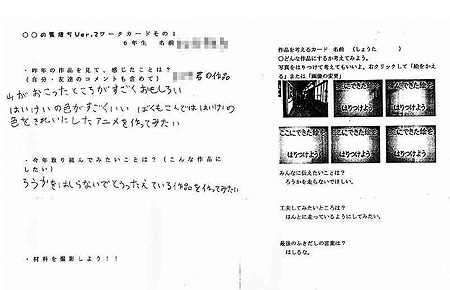 〇〇の気持ちVer.2ワークカードその1
6年生 名前
・昨年の作品を見て、感じたことは?
(自分・友達のコメントも含めて)
君の作品
山がおこったところがすごくおもしろい
はいけいの色がすごくいい ぼくもこんどははいけいの
色をきれいにしたアニメを作ってみたい
・今年取り組んでみたいことは?(こんな作品に
したい)
ろうかをはしらないでとうったえている作品を作ってみたい
・材料を撮影しよう!!
作品を考えるカード 名前 (しょうた )
〇どんな作品にするか考えてみよう。
写真をはりつけて考えてもいいよ。右クリックして「絵をかえ
る」または「画像の変更」
ここにできた絵を
はりつけよう
ここにできた絵を
はりつけよう
ここにできた絵を
はりつけよう
ここにできた絵を
はりつけよう
ここにできた絵を
はりつけよう
みんなに伝えたいことは?
ろうかを走らないでほしい。
工夫してみたいところは?
ほんとに走っているようにしてみたい。
最後のふきだしの言葉は?
はしるな。